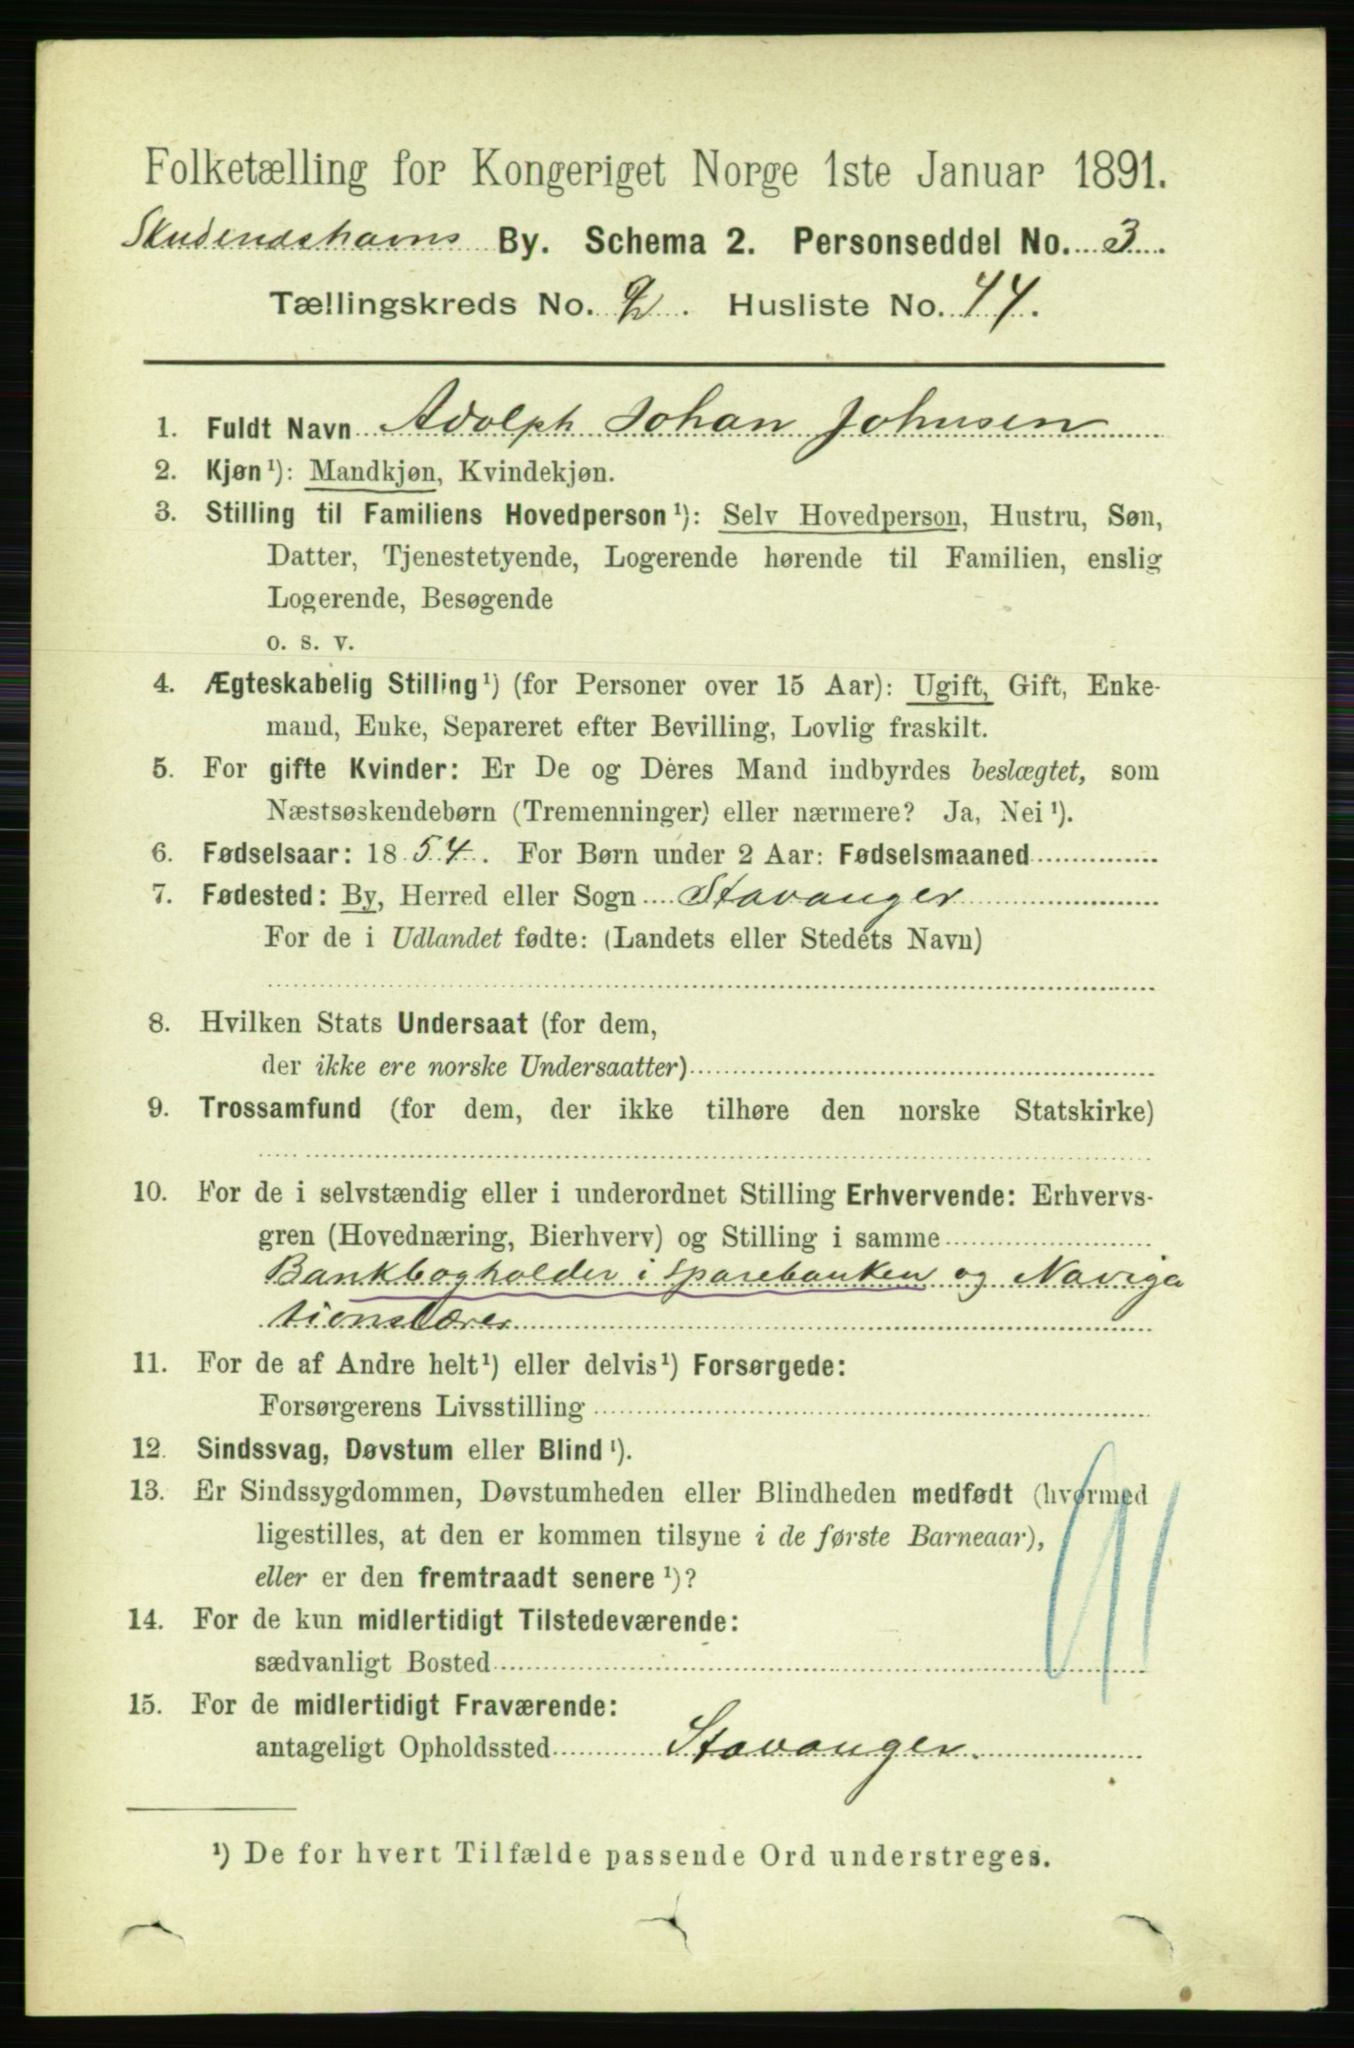 Folketælling for Kongeriget Norge 1ste Januar 1891.
Skudeneshavns By. Schema 2. Personseddel No. 3.
Tællingskreds No. 2. Husliste No. 44.
1. Fuldt Navn Adolph Johan Johnsen
2. Kjøn¹): Mandkjøn, Kvindekjøn.
3. Stilling til Familiens Hovedperson¹): Selv Hovedperson, Hustru, Søn,
Datter, Tjenestetyende, Logerende hørende til Familien, enslig
Logerende, Besøgende
o. s. v.
4. Ægteskabelig Stilling¹) (for Personer over 15 Aar): Ugift, Gift, Enke-
mand, Enke, Separeret efter Bevilling, Lovlig fraskilt.
5. For gifte Kvinder: Er De og Deres Mand indbyrdes beslægtet, som
Næstsøskendebørn (Tremenninger) eller nærmere? Ja, Nei¹).
6. Fødselsaar: 1854. For Børn under 2 Aar: Fødselsmaaned
7. Fødested: By, Herred eller Sogn Stavanger
For de i Udlandet fødte: (Landets eller Stedets Navn)
8. Hvilken Stats Undersaat (for dem,
der ikke ere norske Undersaatter)
9. Trossamfund (for dem, der ikke tilhøre den norske Statskirke)
10. For de i selvstændig eller i underordnet Stilling Erhvervende: Erhvervs-
gren (Hovednæring, Bierhverv) og Stilling i samme
Bankbogholder i Sparebanken og Naviga
tionslærer
11. For de af Andre helt¹) eller delvis¹) Forsørgede:
Forsørgerens Livsstilling
12. Sindssvag, Døvstum eller Blind¹).
13. Er Sindssygdommen, Døvstumheden eller Blindheden medfødt (hvormed
ligestilles, at den er kommen tilsyne i de første Barneaar),
eller er den fremtraadt senere¹)?
14. For de kun midlertidigt Tilstedeværende:
sædvanligt Bosted
15. For de midlertidigt Fraværende:
antageligt Opholdssted Stavanger.
¹) De for hvert Tilfælde passende Ord understreges.